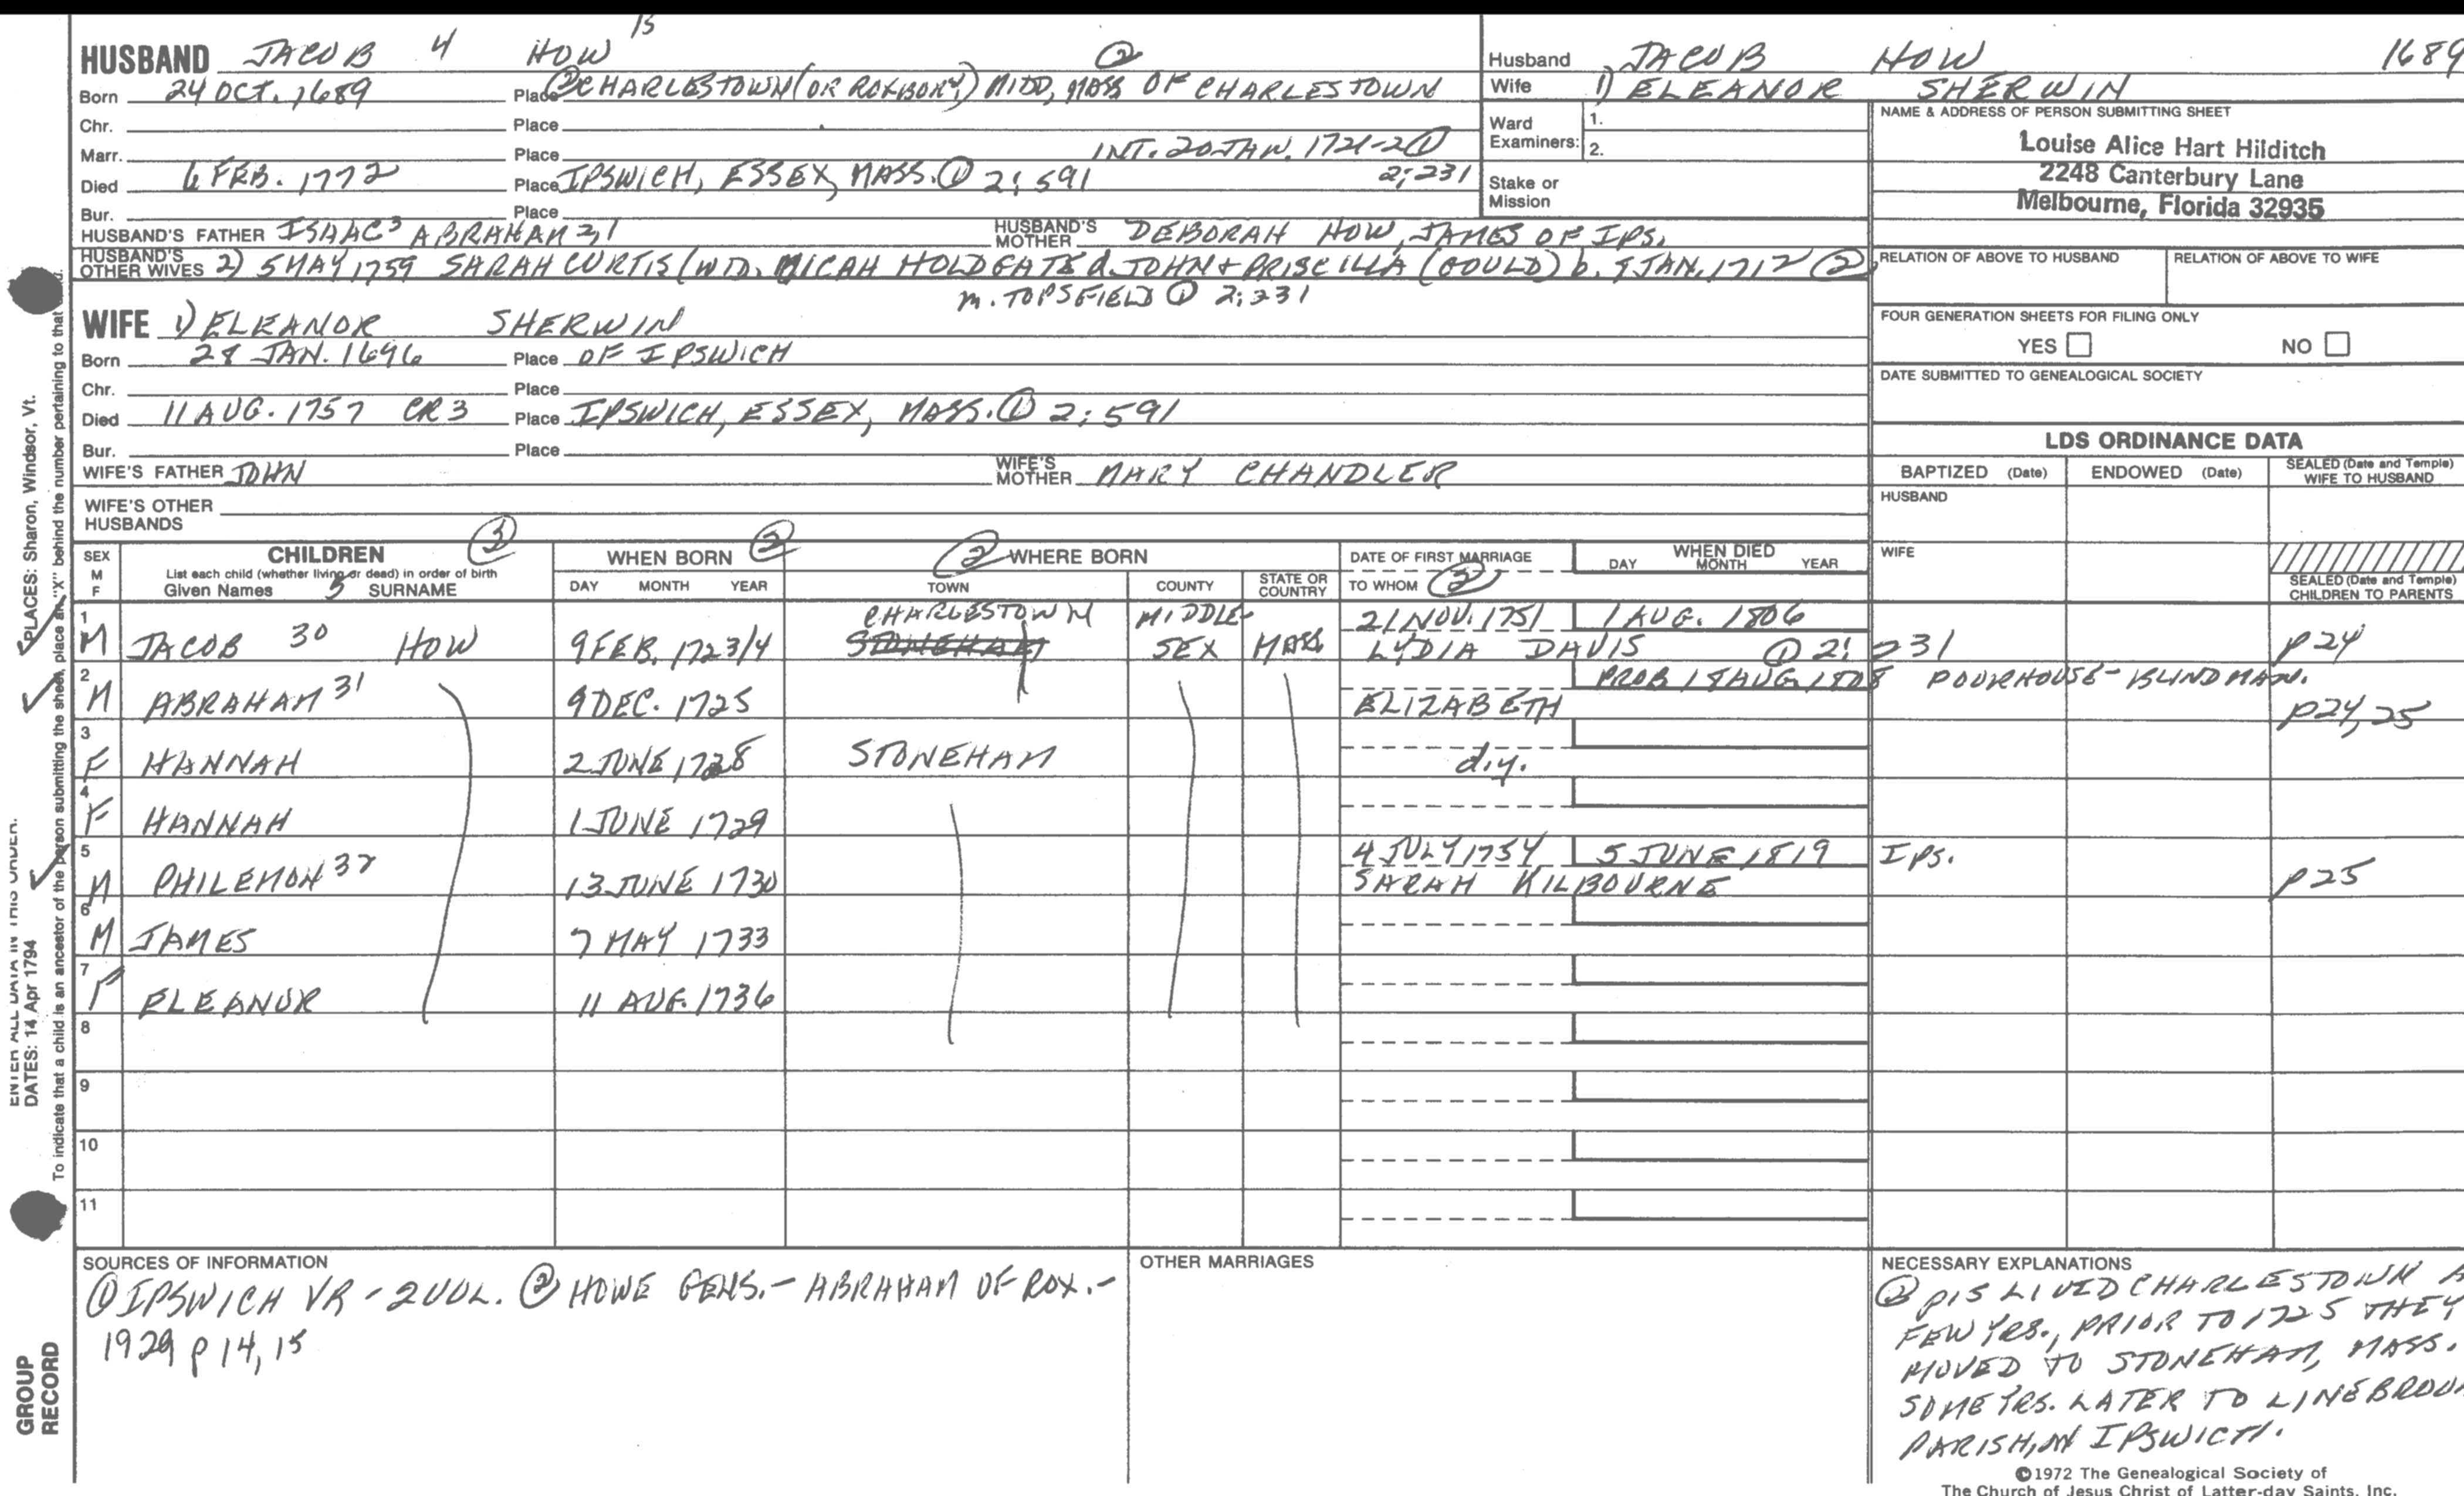 HUSBAND JACOB 4 HOW 15 ②
Born 24 OCT. 1689 Place ②CHARLESTOWN (OR ROXBORY) MIDD, MASS OF CHARLESTOWN
Chr. Place
Marr. Place INT. 20 JAN. 1721-2 ①
Died 6 FEB. 1772 Place IPSWICH, ESSEX, MASS. ① 2:591 2:231
Bur. Place
HUSBAND'S FATHER ISAAC 3 ABRAHAM 2,1 HUSBAND'S MOTHER DEBORAH HOW, JAMES OF IPS.
HUSBAND'S OTHER WIVES 2) 5 MAY 1759 SARAH CURTIS (WD. MICAH HOLDGATE d. JOHN + PRISCILLA (GOULD) b. 9 JAN. 1712 ②
m. TOPSFIELD ① 2:231
WIFE 1) ELEANOR SHERWIN
Born 28 JAN. 1696 Place OF IPSWICH
Chr. Place
Died 11 AUG. 1757 CR3 Place IPSWICH, ESSEX, MASS. ① 2:591
Bur. Place
WIFE'S FATHER JOHN WIFE'S MOTHER MARY CHANDLER
WIFE'S OTHER HUSBANDS
Husband JACOB HOW 1689
Wife 1) ELEANOR SHERWIN
Ward Examiners: 1.
2.
Stake or Mission
NAME & ADDRESS OF PERSON SUBMITTING SHEET
Louise Alice Hart Hilditch
2248 Canterbury Lane
Melbourne, Florida 32935
RELATION OF ABOVE TO HUSBAND RELATION OF ABOVE TO WIFE
FOUR GENERATION SHEETS FOR FILING ONLY
YES NO
DATE SUBMITTED TO GENEALOGICAL SOCIETY
LDS ORDINANCE DATA
BAPTIZED (Date) ENDOWED (Date) SEALED (Date and Temple) WIFE TO HUSBAND
HUSBAND
WIFE
SEALED (Date and Temple) CHILDREN TO PARENTS
SEX M F CHILDREN ③ WHEN BORN ② ② WHERE BORN DATE OF FIRST MARRIAGE WHEN DIED
List each child (whether living or dead) in order of birth DAY MONTH YEAR TOWN COUNTY STATE OR COUNTRY TO WHOM ② DAY MONTH YEAR
Given Names 5 SURNAME
1 CHARLESTOWN MIDDLE- 21 NOV. 1751 1 AUG. 1806
M JACOB 30 HOW 9 FEB. 1723/4 STONEHAM SEX MASS LYDIA DAVIS ① 2:231 p24
2 PROB 18 AUG 1808 POORHOUSE-BLIND MAN.
M ABRAHAM 31 9 DEC. 1725 ELIZABETH p24,25
3
F HANNAH 2 JUNE 1728 STONEHAM d.y.
4
F HANNAH 1 JUNE 1729
5 4 JULY 1754 5 JUNE 1819 IPS.
M PHILEMON 32 13 JUNE 1730 SARAH KILBOURNE p25
6
M JAMES 7 MAY 1733
7
F ELEANOR 11 AUG. 1736
8
9
10
11
SOURCES OF INFORMATION
① IPSWICH VR - 2 VOL. ② HOWE GENS. - ABRAHAM OF ROX. -
1929 p 14, 15
OTHER MARRIAGES
NECESSARY EXPLANATIONS
② p15 LIVED CHARLESTOWN A
FEW YRS., PRIOR TO 1725 THEY
MOVED TO STONEHAM, MASS.
SOME YRS. LATER TO
PARISH, IN IPSWICH.
©1972 The Genealogical Society of
The Church of Jesus Christ of Latter-day Saints, Inc.
PLACES: Sharon, Windsor, Vt.
ENTER ALL DATA IN THIS ORDER:
DATES: 14 Apr 1794
To indicate that a child is an ancestor of the person submitting the sheet, place an "X" behind the number pertaining to that
GROUP
RECORD